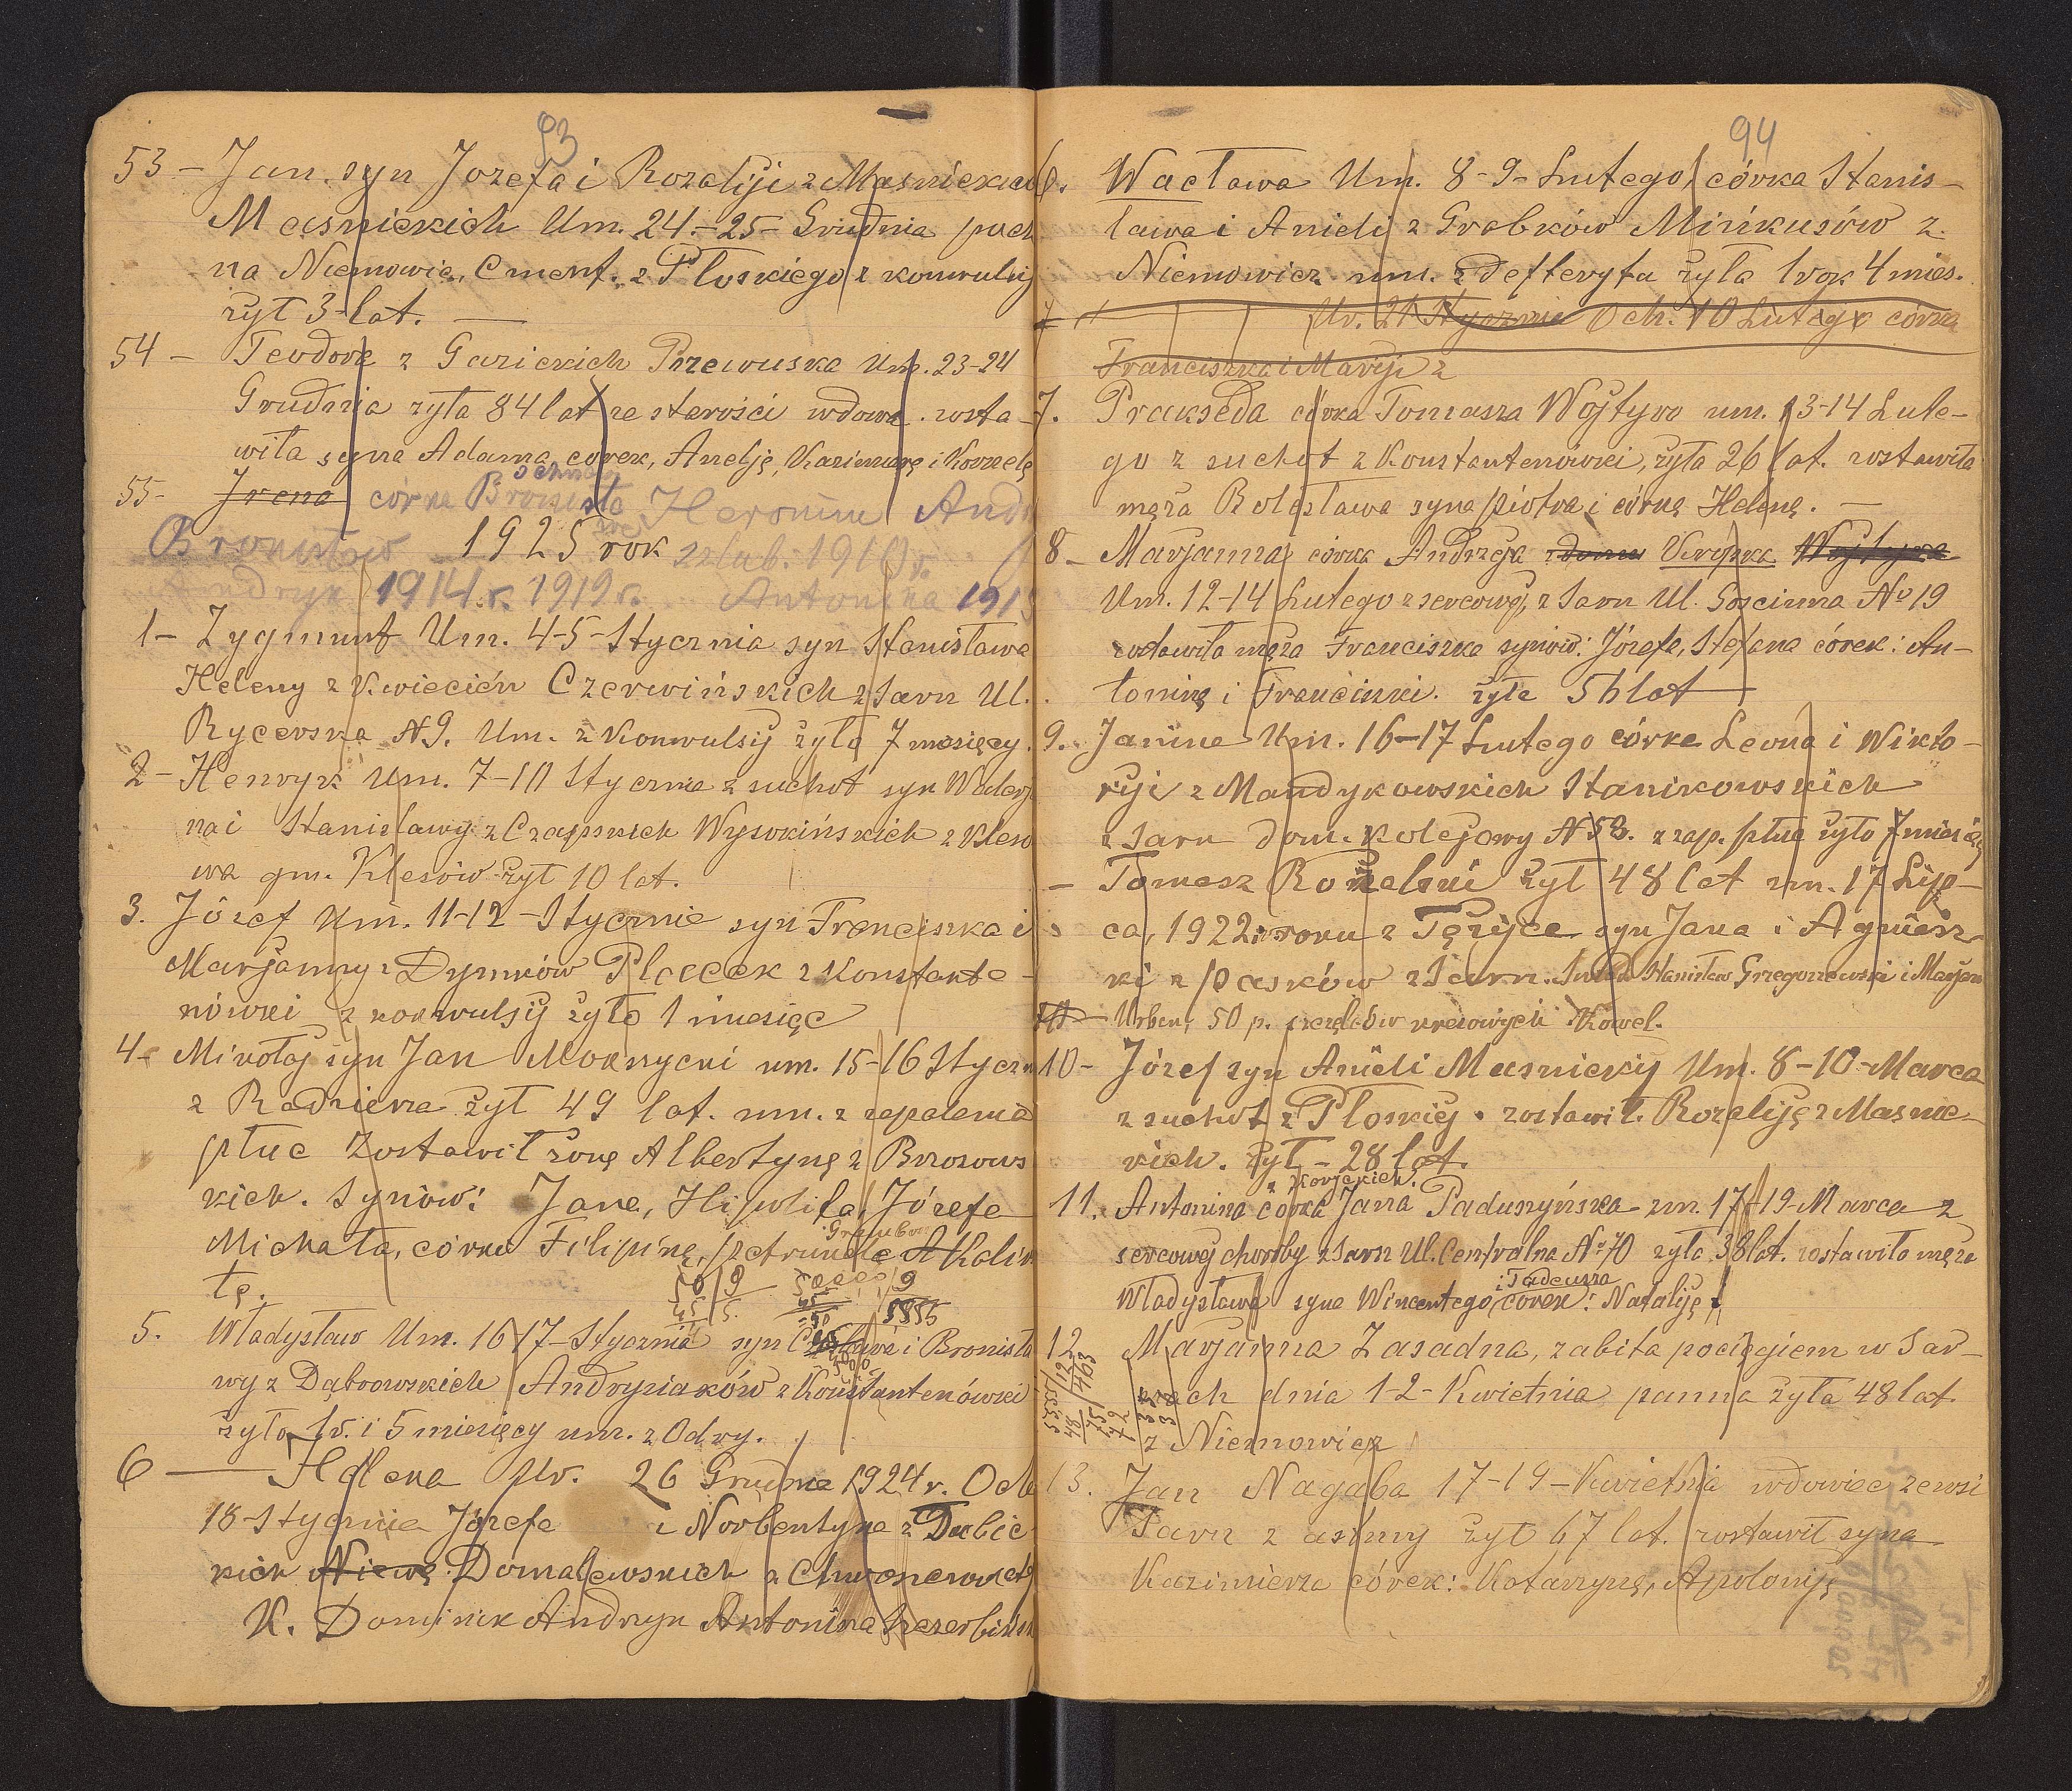 93
53 - Jan syn Jozefa i Rozaliji z Maśnickich
Maśnickich Um. 24 - 25 - Grudnia poch
na Niemowie, Cment. z Płoskiego z konwulsij
żył 3 lat. —
54 - Teodora z Gazickich Przewuska um. 23-24
Grudnia żyła 84 lat ze starości wdowa. zosta-
wiła syna Adama, corek, Anelję, Kazimierę i Kornelę
55- Irena córka Bronisła Heronim Andr
Bronisław 1925 rok szlub. 1910 r.
Andryk 1914 r. 1919 r. Antonina 191
1- Zygmunt Um. 4-5- Stycznia syn Stanisława
Heleny z Kwiecień Czerwińskich z Sarn Ul.
Rycerska N 9. Um. z Konwulsij żyła 7 mesięcy.
2- Henryk Um. 7-10 Stycznia z suchot syn Waler
na i Stanisławy z Czapskich Wysokińskich z Kleso
wa gm. Klesów żył 10 lat.
3. Józef Um. 11-12 - Stycznia syn Franciszka i
Marjanny z Dymków Placek z Konstante-
nówki z konwulsij żyło 1 miesięc
4- Mikołaj syn Jan Mokrzycki um. 15-16 Stycz
z Radzieża żył 49 lat. um. z zapalenia
płuc zostawił żonę Albertynę z Brzozows
kich. Synów: Jana, Hipolita, Józefa
Michała, córka Filipinę, petrunelę
tę.
50/9
5. Władysław Um. 16 17- Stycznia syn i Bronisła
wy z Dąbrowskich Andrysiaków z Konstantenówki
żyło 1 r. i 5 miesięcy um. z Odry.
6 — Helena Ur. 26 Grudnia 1924 r. Och
18- Stycznia Józefa i Norbentyna z Dubic
kich Domalewskich z
K. Dominik Andryk Antonina
94
6. Wacława Um. 8-9- Lutego, córka Stanis-
ława i Anieli z Grabków Mińkusów z
Niemowicz um. z Defteryta żyła 1 rok 4 mies.
7 Ur. 21 Stycznia Och. 10 Lutego córka
Franciszka i Maryji z
7. Prakseda córka Tomasza Wojtyro um. 13-14 Lute-
go z suchot z Konstantenówki, żyła 26 lat. zostawiła
męża Bolesława syna piotra i córkę Helenę. —
8- Marjanna córka Andrzeja Krupka Wojtyra
Um. 12-14 Lutego z sercowej, z Sarn Ul. Goscinna No 19
zostawiła męża Franciszka synów: Józefa, Stefana córek: An-
toninę i Franciszki. żyła 56 lat —
9. Janina Um. 16-17 Lutego córka Leona i Wikto-
ryji z Mandykowskich Stanikowskich
z Sarn dom. Kolejowy N 58. z zap. płuc żyło 7 miesięcy
- Tomasz Rozalski żył 48 lat um. 17 Lip-
ca, 1922 roku z Tężyce syn Jana i Agniesz
ki z pasków z Sarn. Stanisław Grzegorzewski i Marjan
Urban, 50 p. strzelców kresowych Kowel.
10- Józef syn Anieli Masnickij Um. 8-10- Marca
z suchot z Płoskiej. zostawił. Rozaliję z Masnic-
kich. żył - 28 lat.
11. Antonina córka Jana Paduszyńska um. 17-19- Marca z
sercowej choroby z Sarn Ul. Centralna No 70 żyła 38 lat. zostawiła męża
i Tadeusza
Władysława syna Wincentego, córek: Nataliję i
12 Marjanna Zasadna, zabita pociągiem w Sar-
nach dnia 1-2- Kwietnia panna żyła 48 lat.
z Niemowicz
13. Jan Nagaba 17-19- Kwietnia wdowiec zewsi
Sarn z astmy żył 67 lat. zostawił syna
Kazimierza córek: Katarzynę, Apoloniję